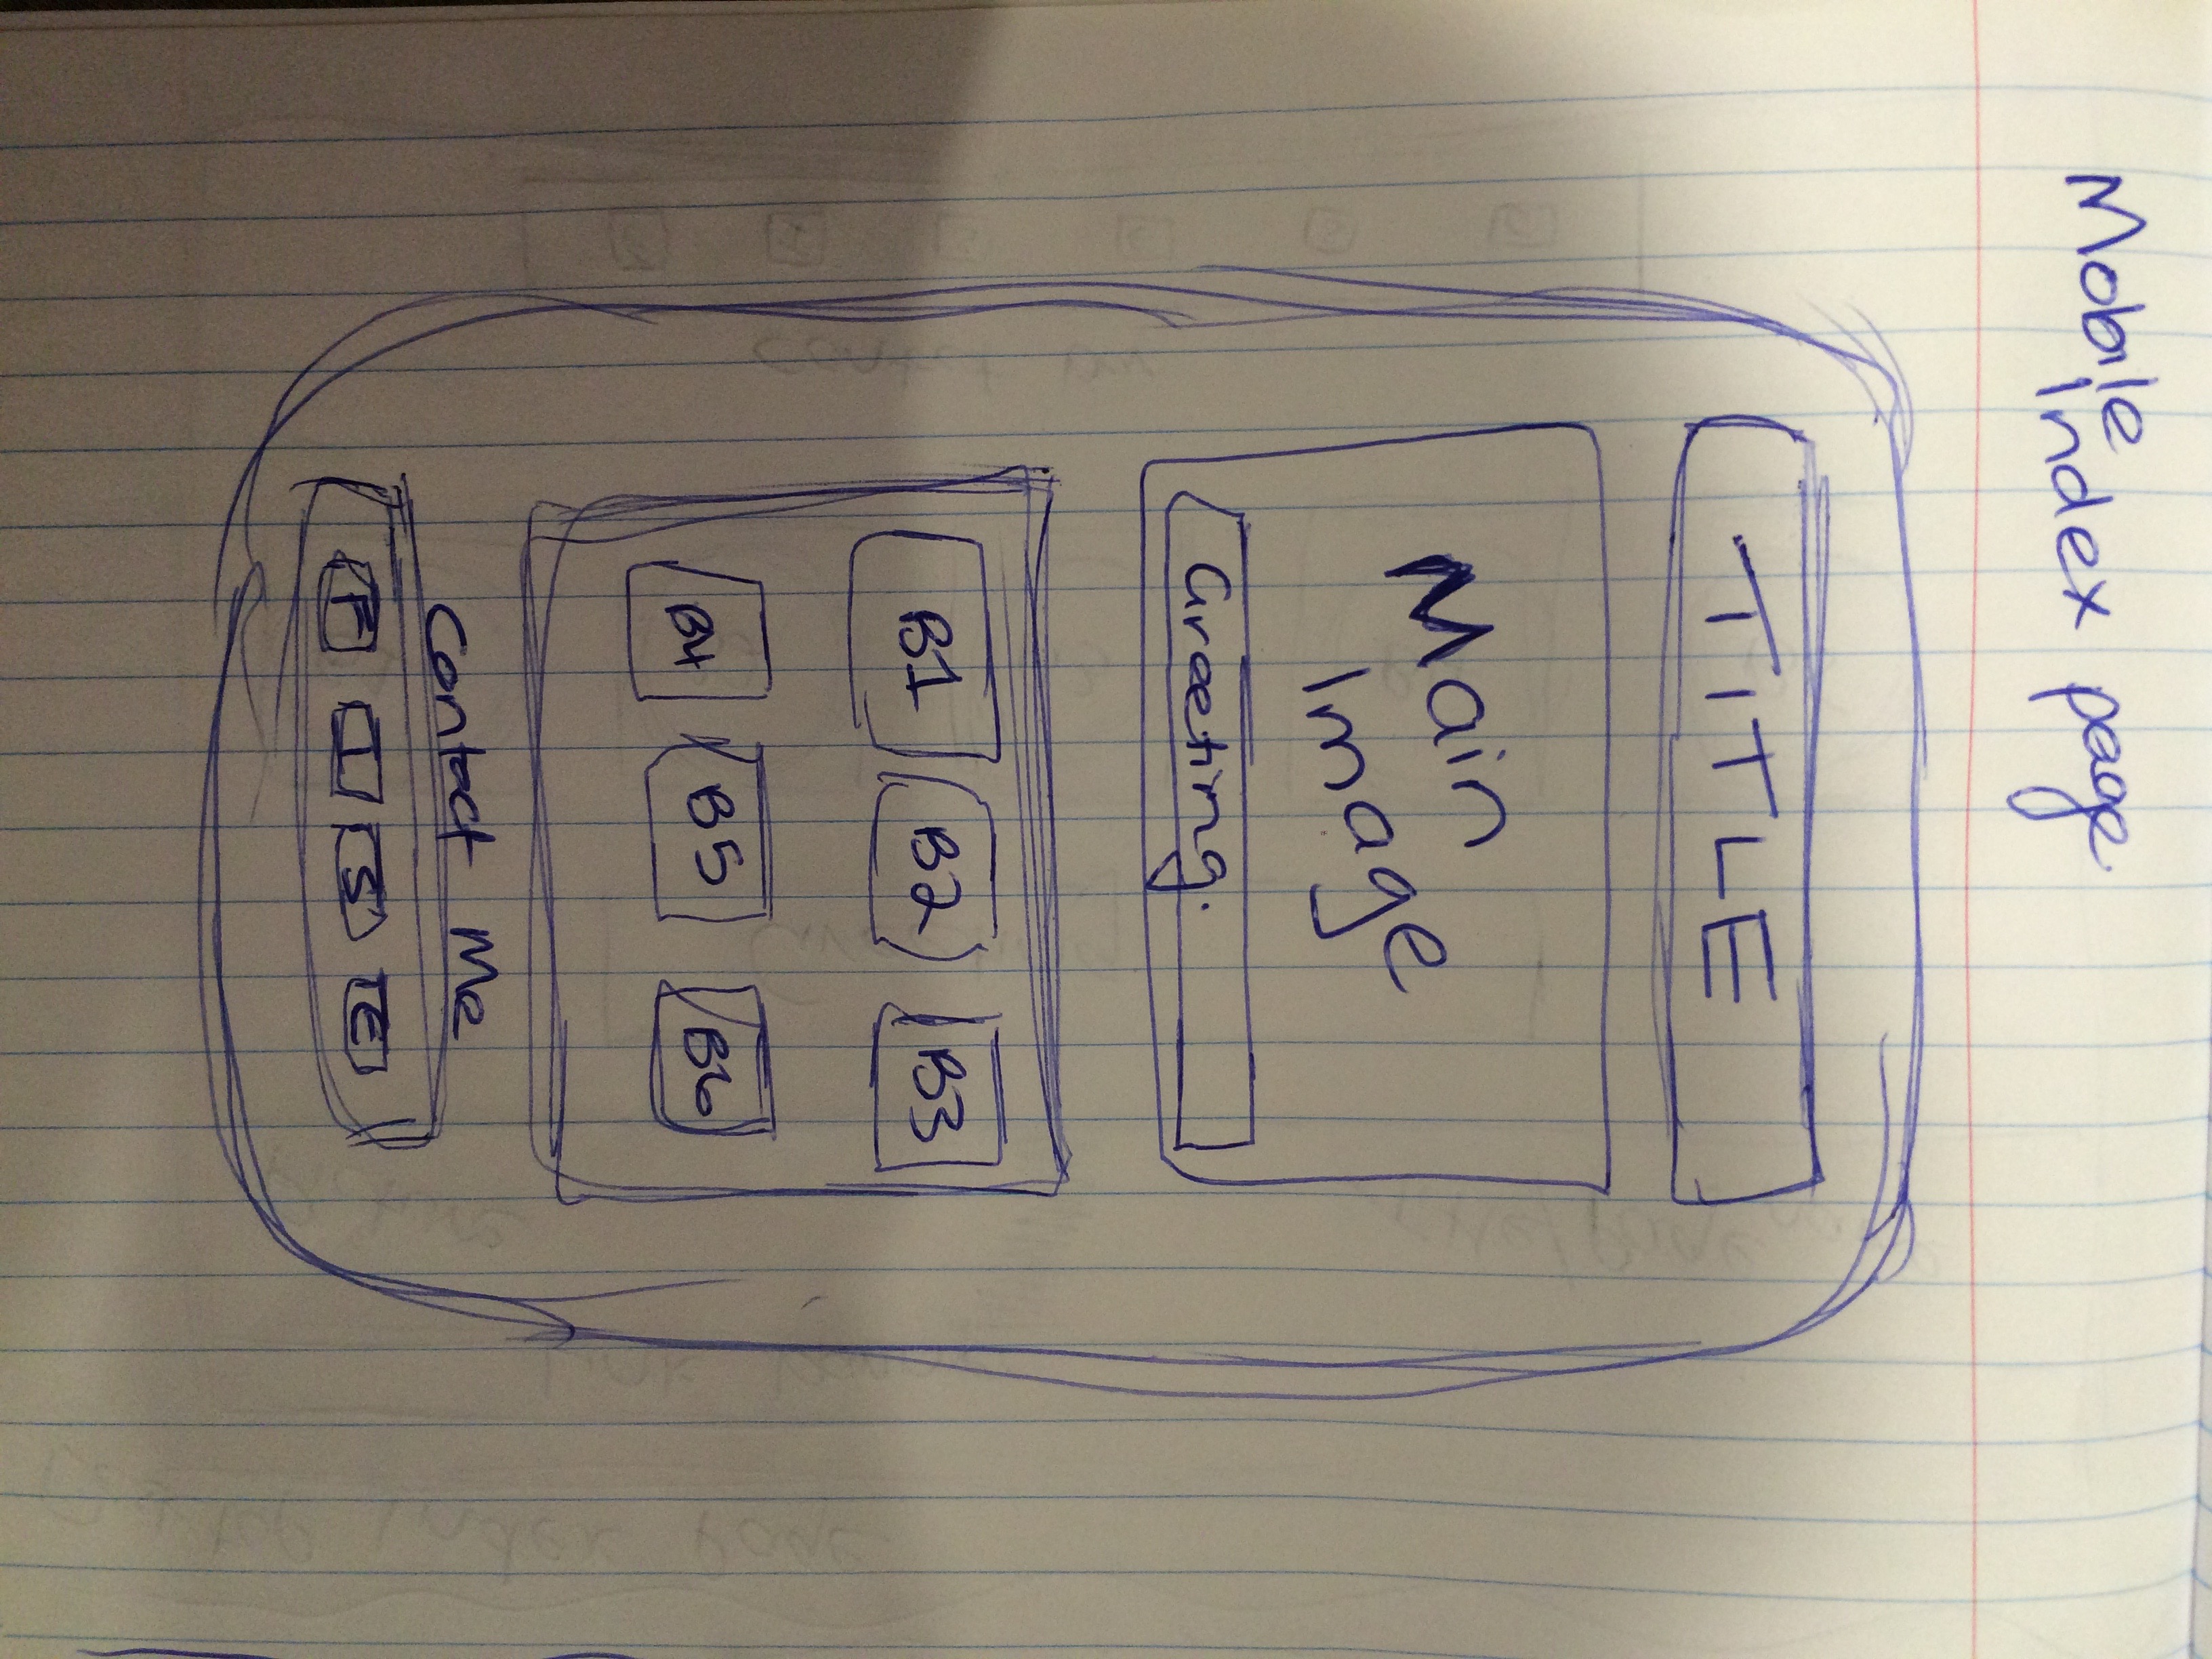 Mobile
index page
TITLE
Main
Image
Greeting.
B1 B2 B3
B4 B5 B6
Contact Me
F I S E